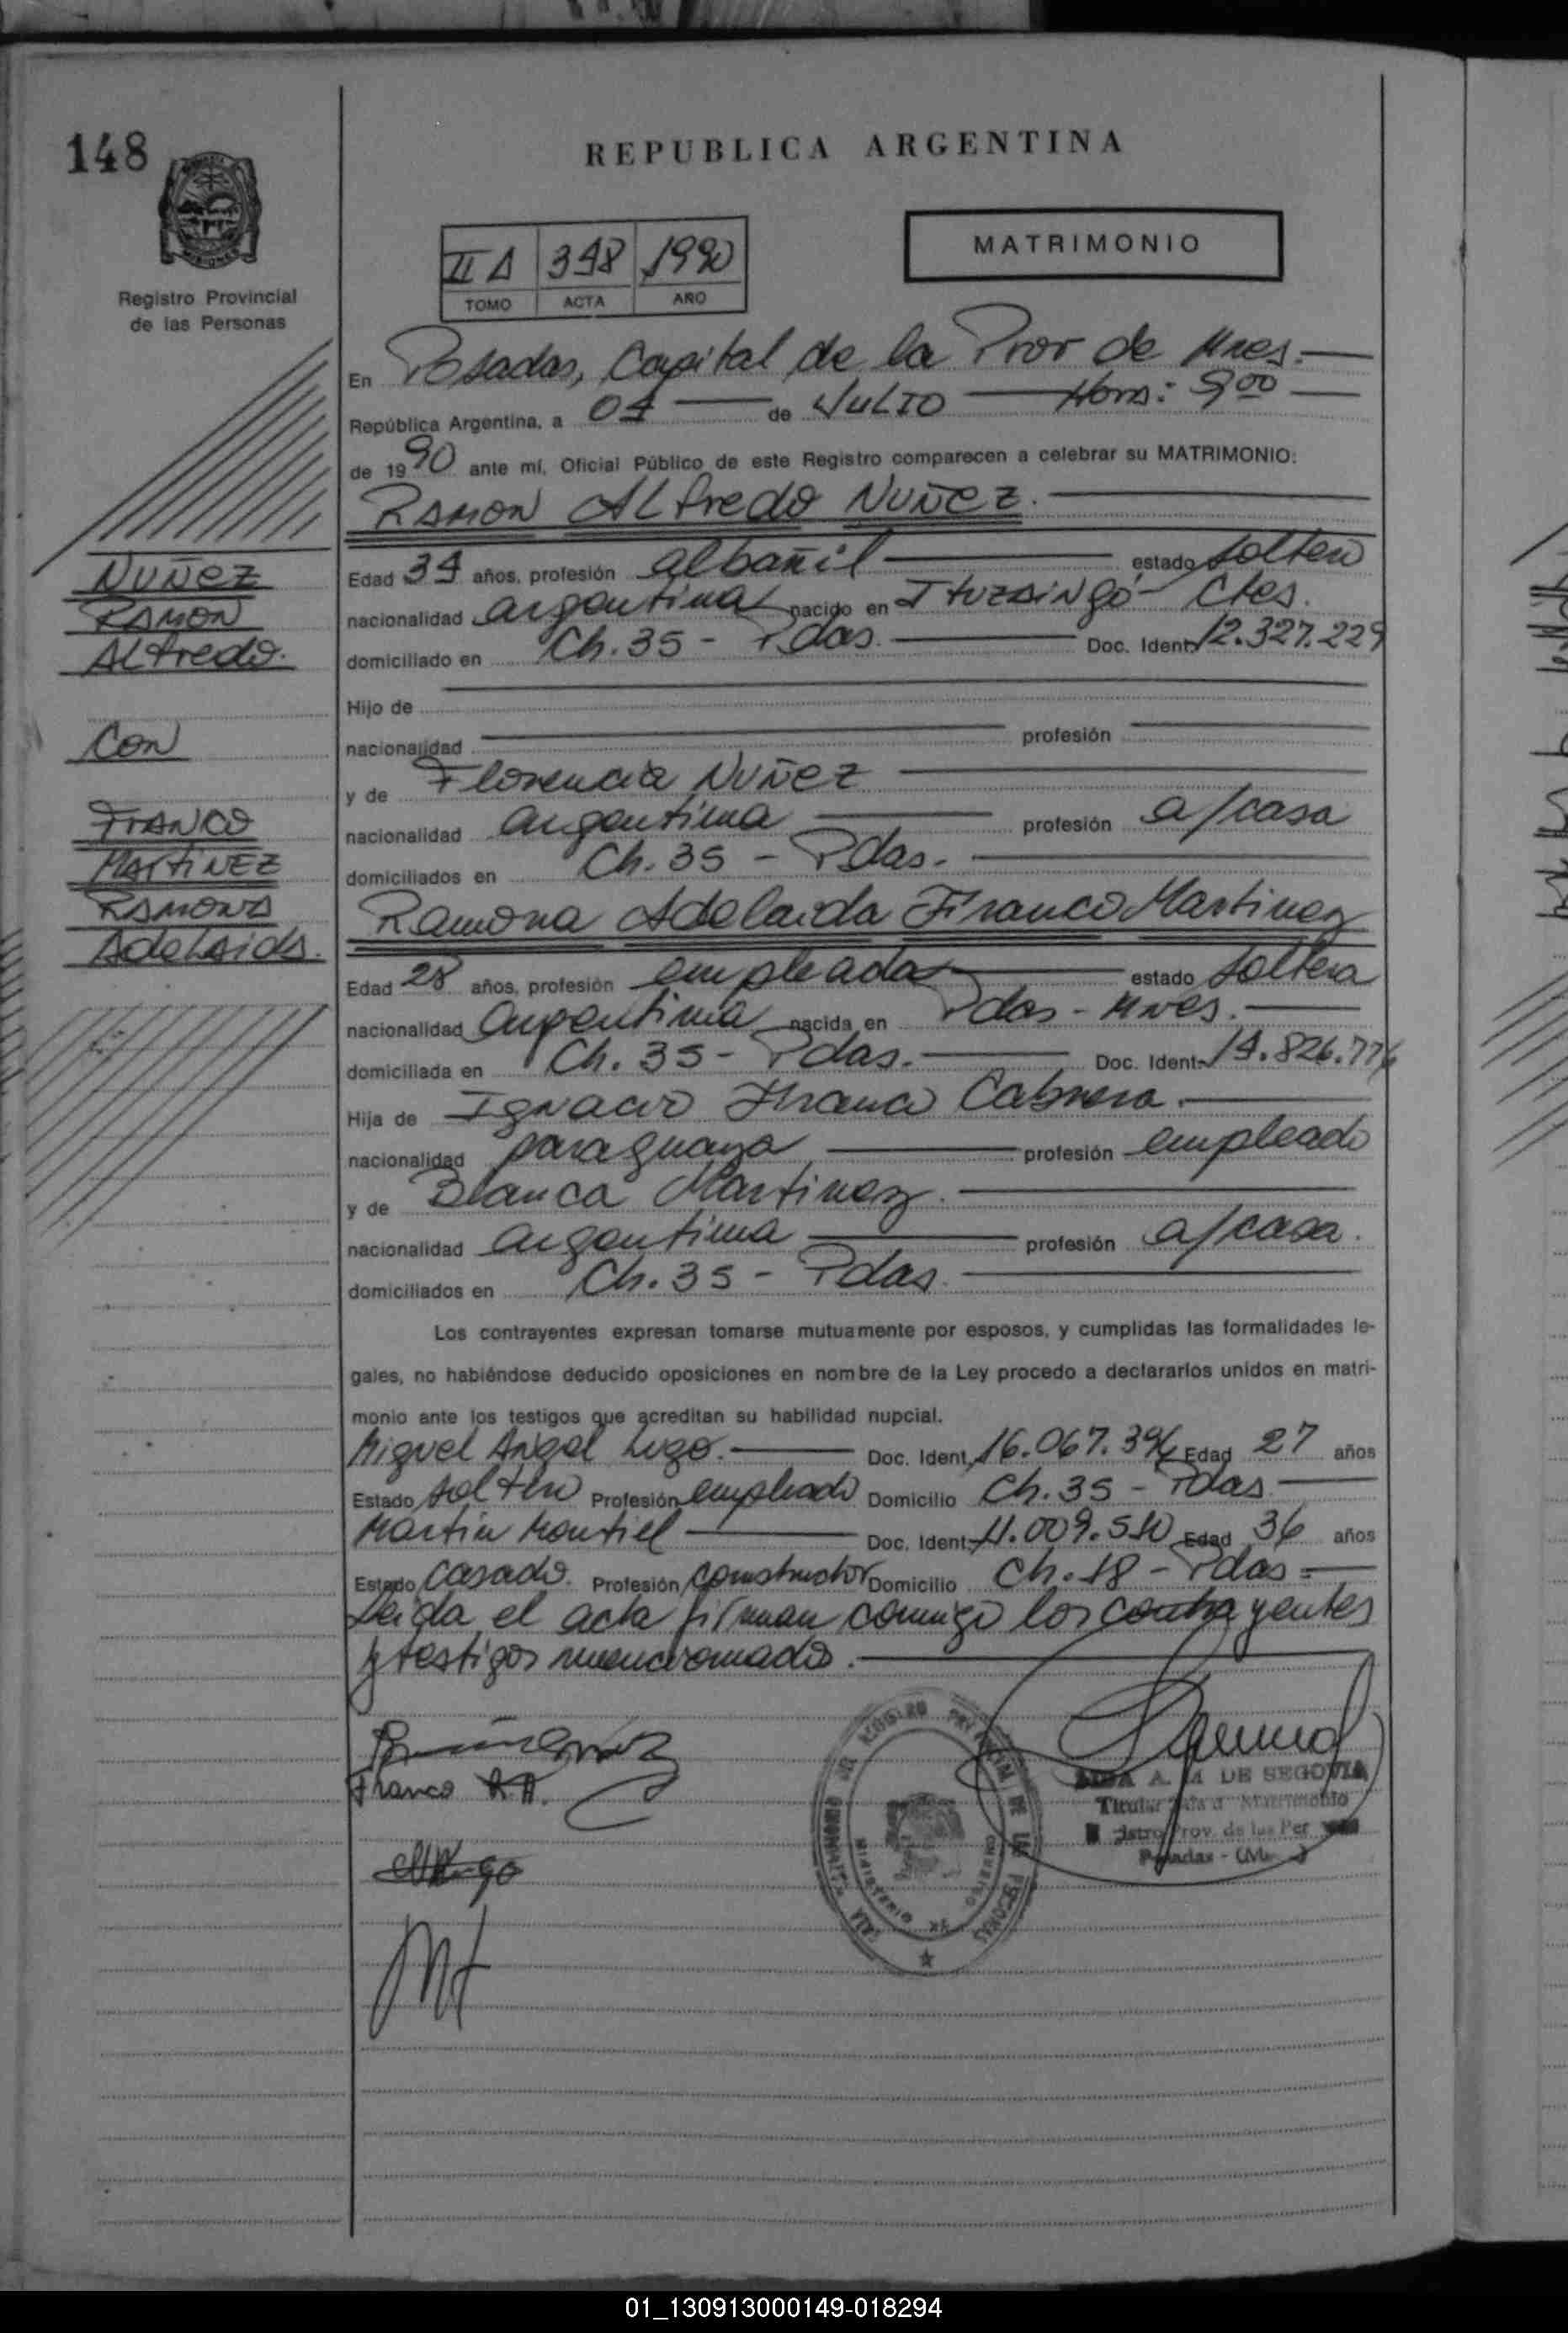 148
REPUBLICA ARGENTINA
MATRIMONIO
II A 348 1990
TOMO ACTA AÑO
Registro Provincial
de las Personas
En Posadas, Capital de la Prov de Mnes.
República Argentina, a 04 de JULIO Hora: 9 00
de 1990 ante mí, Oficial Público de este Registro comparecen a celebrar su MATRIMONIO:
RAMON ALfredo NUÑEZ.
Edad 34 años, profesión albañil estado soltero
nacionalidad argentina nacido en ItuzaiNgó - Ctes.
domiciliado en Ch. 35 - Pdas. Doc. Ident. 12.327.229
Hijo de
nacionalidad profesión
y de Florencia NUÑEZ
nacionalidad argentina profesión a/casa
domiciliados en Ch. 35 - Pdas.
Ramona Adelaida Franco Martinez
Edad 28 años, profesión empleada estado soltera
nacionalidad argentina nacida en Pdas - Mnes.
domiciliada en Ch. 35 - Pdas. Doc. Ident. 14.826.776
Hija de Ignacio Franco Cabrera.
nacionalidad paraguaya profesión empleado
y de Blanca Martinez.
nacionalidad argentina profesión a/casa.
domiciliados en Ch. 35 - Pdas.
Los contrayentes expresan tomarse mutuamente por esposos, y cumplidas las formalidades le-
gales, no habiéndose deducido oposiciones en nombre de la Ley procedo a declararlos unidos en matri-
monio ante los testigos que acreditan su habilidad nupcial.
Miguel Angel Lugo. Doc. Ident. 16.067.396 Edad 27 años
Estado soltero Profesión empleado Domicilio Ch. 35 - Pdas.
Martin Montiel Doc. Ident. 11.009.510 Edad 36 años
Estado Casado. Profesión Constructor Domicilio Ch. 18 - Pdas.
Leida el acta firman conmigo los contrayentes
y testigos mencionados.
NUÑEZ
RAMON
ALfredo.
CON
FRANCO
MARTINEZ
RAMONA
AdeLAidA.
Franco R.A.
A. M DE SEGOVIA
Titular Sala d Matrimonio
istro Prov. de las Per
Posadas - (Mn
01_130913000149-018294